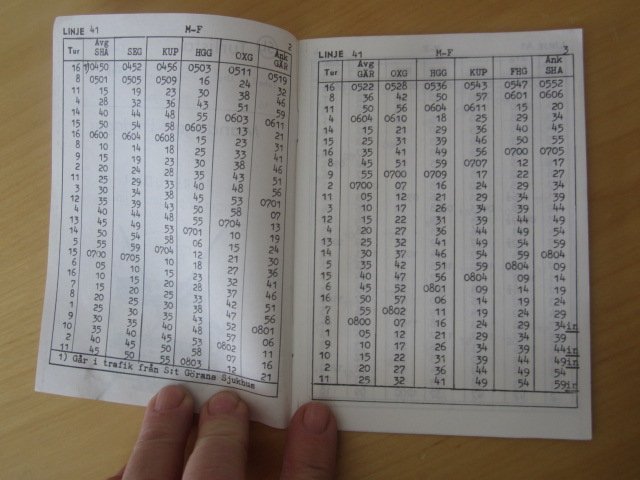 LINJE 41 M-F 2
Tur Avg SHA SEG KUP HGG OXG Ank GÄR
16 1)0450 0452 0456 0503 0511 0519
8 0501 0505 0509 16 24 32
11 15 19 23 30 38 46
4 28 32 36 43 51 59
14 40 44 48 55 0603 0611
15 50 54 58 0605 13 21
16 0600 0604 0608 15 23 31
8 10 14 18 25 33 41
9 15 19 23 30 38 46
2 20 24 28 35 43 51
11 25 29 33 40 48 56
3 30 34 38 45 53 0701
12 35 39 43 50 58 07
4 40 44 48 55 0704 13
13 45 49 53 0701 10 19
14 50 54 58 06 15 24
5 55 59 0704 12 21 30
15 0700 0705 10 18 27 36
6 05 10 15 23 32 41
16 10 15 20 28 37 46
7 15 20 25 33 42 51
8 20 25 30 38 47 56
1 25 30 35 43 52 0801
9 30 35 40 48 57 06
10 35 40 45 53 0802 11
2 40 45 50 58 07 16
11 45 50 55 0803 12 21
1) Går i trafik från S:t Görans Sjukhus
LINJE 41 M-F 3
Tur Avg GÄR OXG HGG KUP FHG Ank SHA
16 0522 0528 0536 0543 0547 0552
8 36 42 50 57 0601 0606
11 50 56 0604 0611 15 20
4 0604 0610 18 25 29 34
14 15 21 29 36 40 45
15 25 31 39 46 50 55
16 35 41 49 56 0700 0705
8 45 51 59 0707 12 17
9 55 0700 0709 17 22 27
2 0700 07 16 24 29 34
11 05 12 21 29 34 39
3 10 17 26 34 39 44
12 15 22 31 39 44 49
4 20 27 36 44 49 54
13 25 32 41 49 54 59
14 30 37 46 54 59 0804
5 35 42 51 59 0804 09
15 40 47 56 0804 09 14
6 45 52 0801 09 14 19
16 50 57 06 14 19 24
7 55 0802 11 19 24 29
8 0800 07 16 24 29 34in
1 05 12 21 29 34 39
9 10 17 26 34 39 44in
10 15 22 31 39 44 49in
2 20 27 36 44 49 54
11 25 32 41 49 54 59in